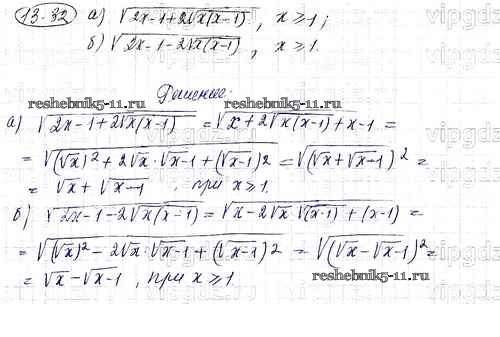 13-32 а) √(2x-1+2√x(x-1)), x≥1;
б) √(2x-1-2√x(x-1)), x≥1.
Решение.
reshebnik5-11.ru reshebnik5-11.ru
а) √(2x-1+2√x(x-1)) = √(x+2√x(x-1)+x-1) =
= √((√x)²+2√x·√x-1+(√x-1)²) = √((√x+√x-1)²) =
= √x+√x-1, при x≥1.
б) √(2x-1-2√x(x-1)) = √(x-2√x√(x-1)+(x-1)) =
= √((√x)²-2√x·√x-1+(√x-1)²) = √((√x-√x-1)²) =
= √x-√x-1, при x≥1.
reshebnik5-11.ru
vipgdz
vipgdz
vipgdz
vipgdz